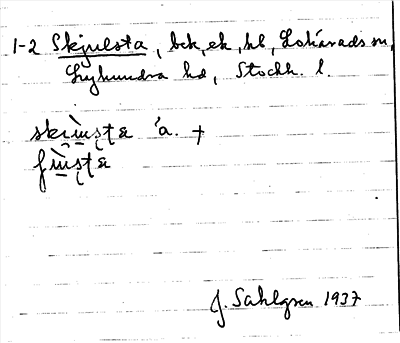 1-2 Skjulsta, bek, ek, hl, Lohärads sn,
Lyhundra hd, Stockh. l.
'a. +
J. Sahlgren 1937